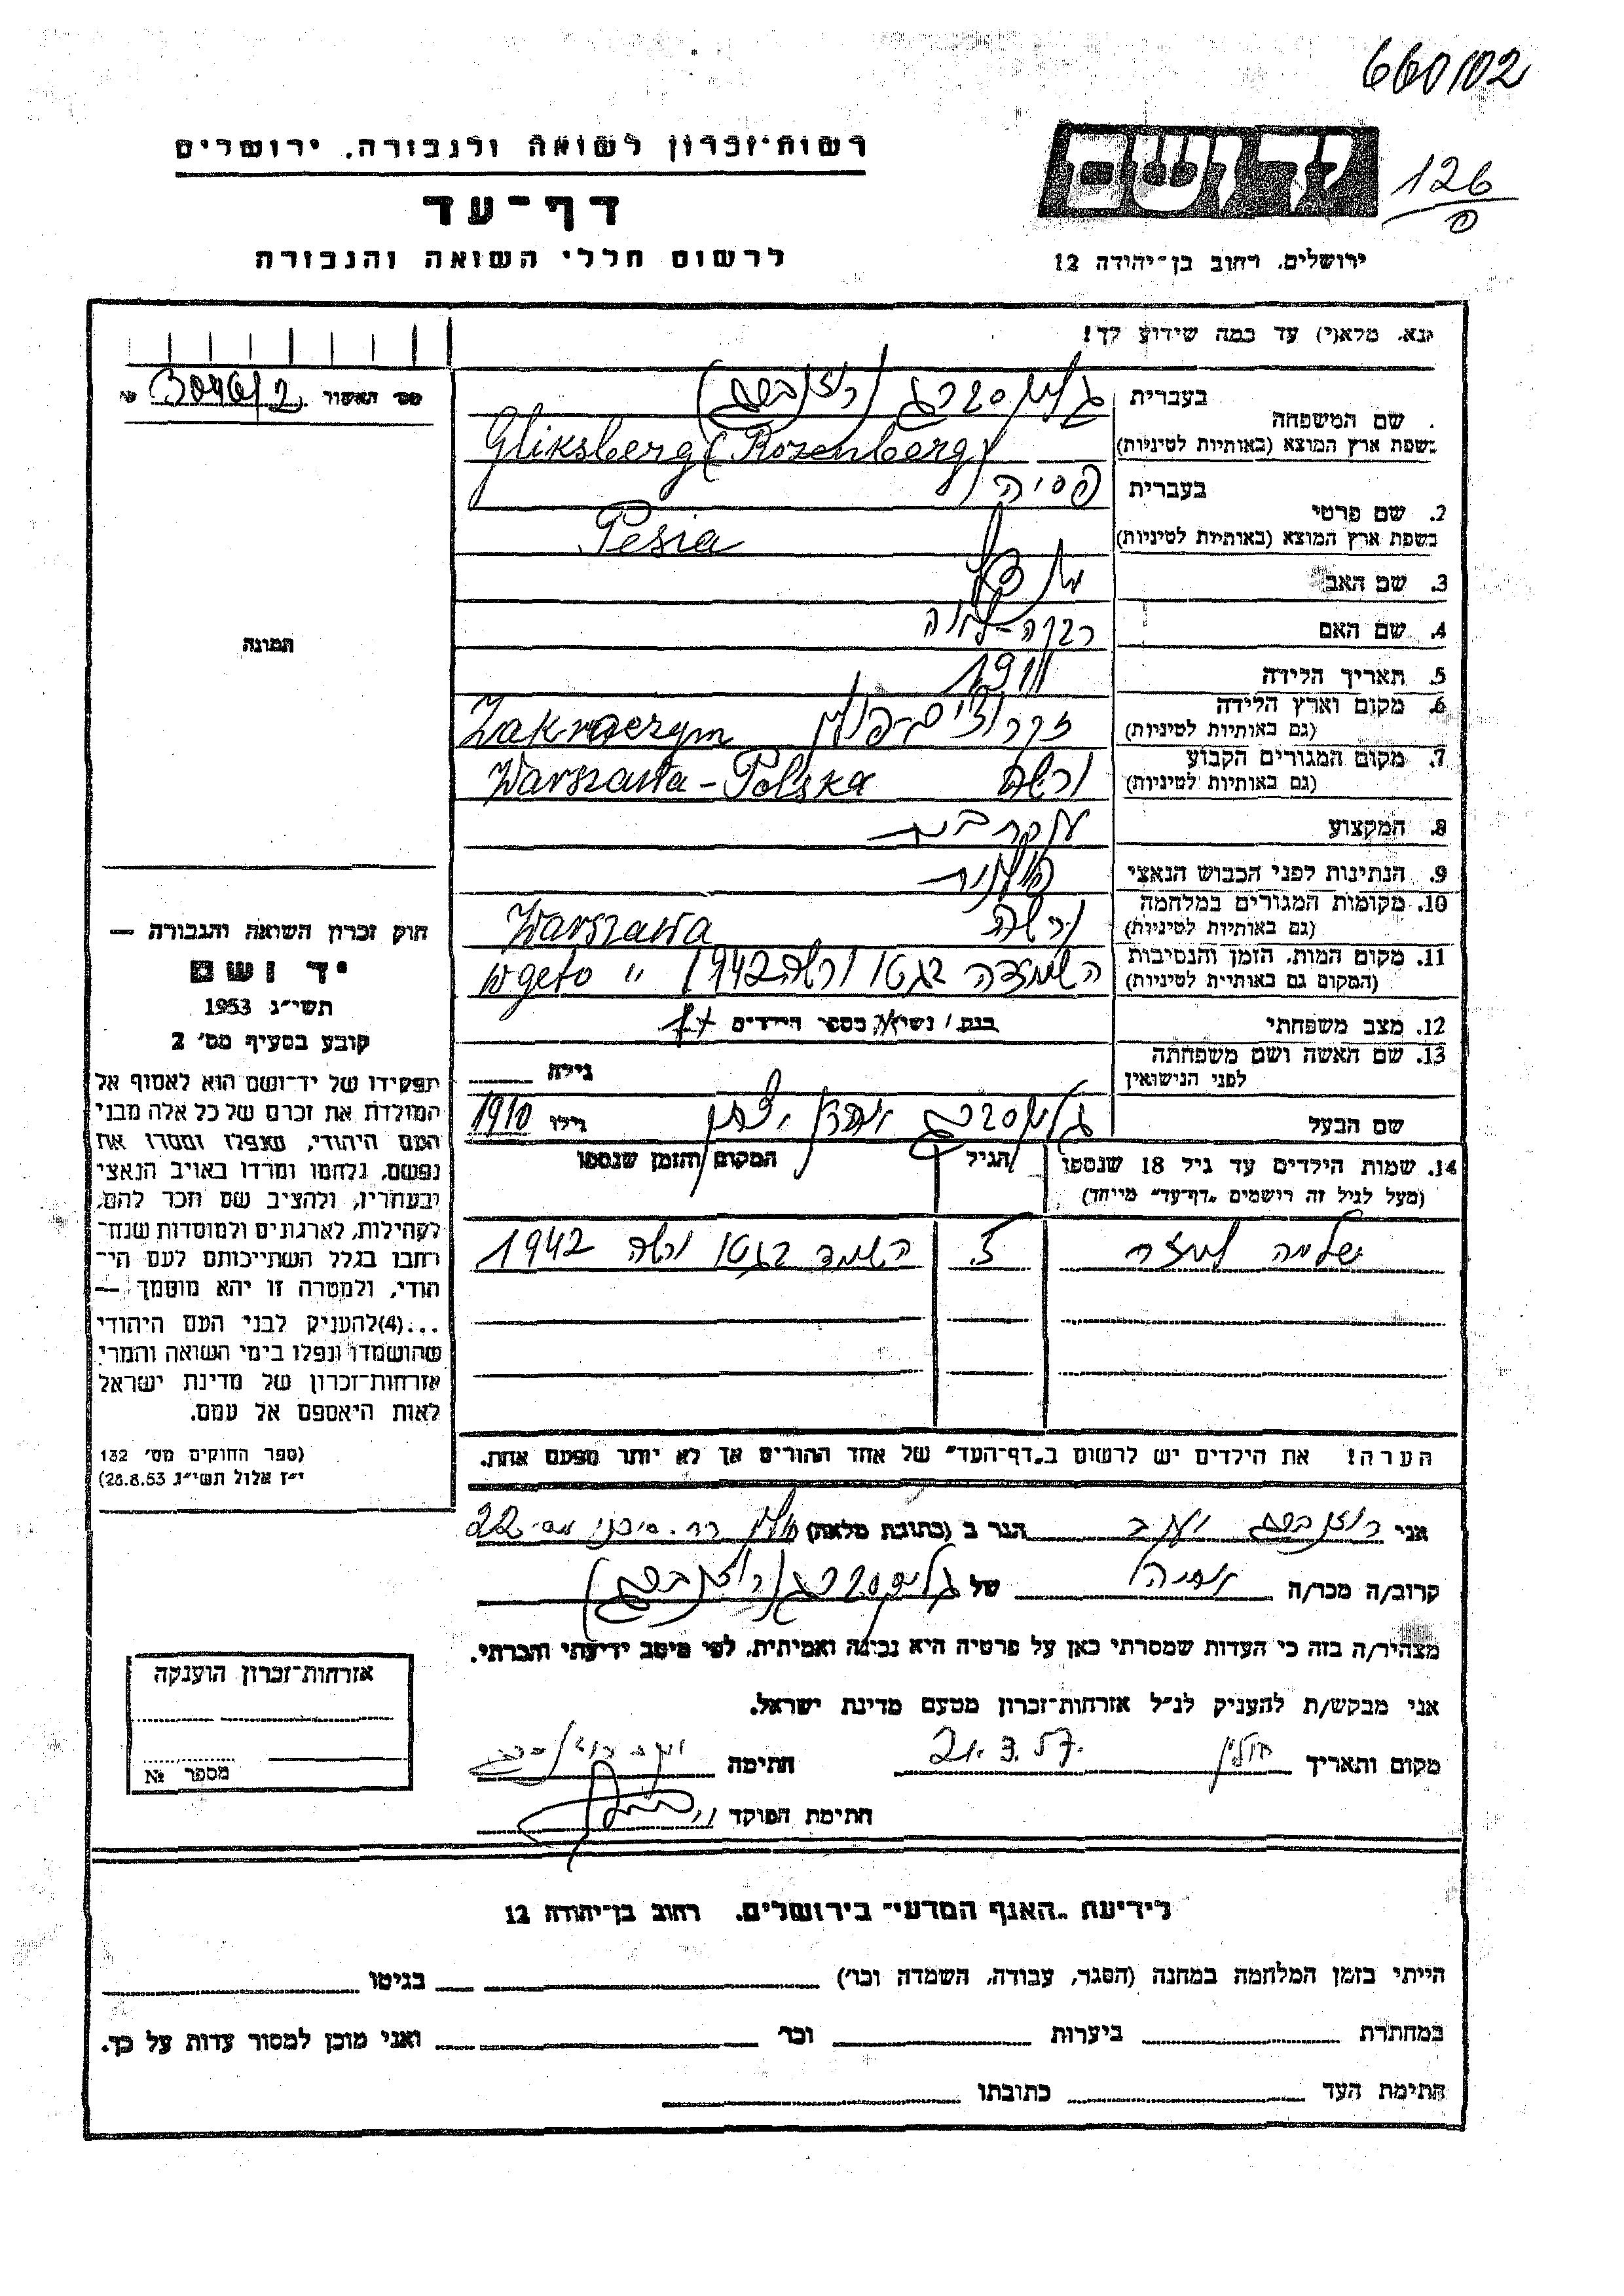 660102
רשות־זכרון לשואה ולגבורה. ירושלים
דף־עד
לרשום חללי השואה והגבורה
ידושם
126
ירושלים. רחוב בן־יהודה 12
נא. מלא(י) עד כמה שידוע לך!
מס׳ האשור
שם המשפחה
בעברית גליקסברג (רוזנברג)
בשפת ארץ המוצא (באותיות לטיניות) Gliksberg (Rozenberg)
2. שם פרטי
בעברית פסיה
בשפת ארץ המוצא (באותיות לטיניות) Pesia
3. שם האב
4. שם האם רבקה-
5. תאריך הלידה 1911
6. מקום וארץ הלידה
(גם באותיות לטיניות) Zakroczym
7. מקום המגורים הקבוע ורשה
(גם באותיות לטיניות) Warszawa - Polska
8. המקצוע עקרת בית
9. הנתינות לפני הכבוש הנאצי פולנית
10. מקומות המגורים במלחמה ורשה
(גם באותיות לטיניות) Warszawa
11. מקום המות, הזמן והנסיבות השמדה בגטו ורשה 1942
(המקום גם באותיות לטיניות) w geto "
12. מצב משפחתי נשוי/אה, מספר הילדים 1
13. שם האשה ושם משפחתה
לפני הנישואין
גילה
שם הבעל גליקסברג
גילו 1910
14. שמות הילדים עד גיל 18 שנספו
(מעל לגיל זה רישמים „דף־עד״ מיוחד)
הגיל
המקום והזמן שנספו
שלמה
השמד בגטו ורשה 1942
הערה! את הילדים יש לרשום ב„דף־העד״ של אחד ההורים אך לא יותר מפעם אחת.
תמונה
חוק זכרון השואה והגבורה —
יד ושם
תשי״ג 1953
קובע בסעיף מס׳ 2
תפקידו של יד־ושם הוא לאסוף אל
המולדת את זכרם של כל אלה מבני
העם היהודי, שנפלו ומסרו את
נפשם, נלחמו ומרדו באויב הנאצי
ובעוזריו, ולהציב שם וזכר להם,
לקהילות, לארגונים ולמוסדות שנח־
רחבו בגלל השתייכותם לעם הי־
הודי, ולמטרה זו יהא מוסמך —
...(4)להעניק לבני העם היהודי
שהושמדו ונפלו בימי השואה והמרי
אזרחות־זכרון של מדינת ישראל
לאות היאספם אל עמם.
(ספר החוקים מס׳ 132
י״ז אלול תשי״ג 28.8.53)
אני רוזנברג יעקב הגר ב (כתובת מלאה) חולון
22
קרוב/ה מכר/ה של גליקסברג (רוזנברג)
מצהיר/ה בזה כי העדות שמסרתי כאן על פרטיה היא נכונה ואמיתית, לפי מיטב ידיעתי והכרתי.
אני מבקש/ת להעניק לנ״ל אזרחות־זכרון מטעם מדינת ישראל.
מקום ותאריך חולון 21.3.57. חתימה
חתימת הפוקד
אזרחות־זכרון הוענקה
מספר №
לידיעת „האגף המדעי״ בירושלים. רחוב בן־יהודה 12
הייתי בזמן המלחמה במחנה (הסגר, עבודה, השמדה וכו׳) בגיטו
במחתרת ביערות וכו׳ ואני מוכן למסור עדות על כך.
חתימת העד כתובתו